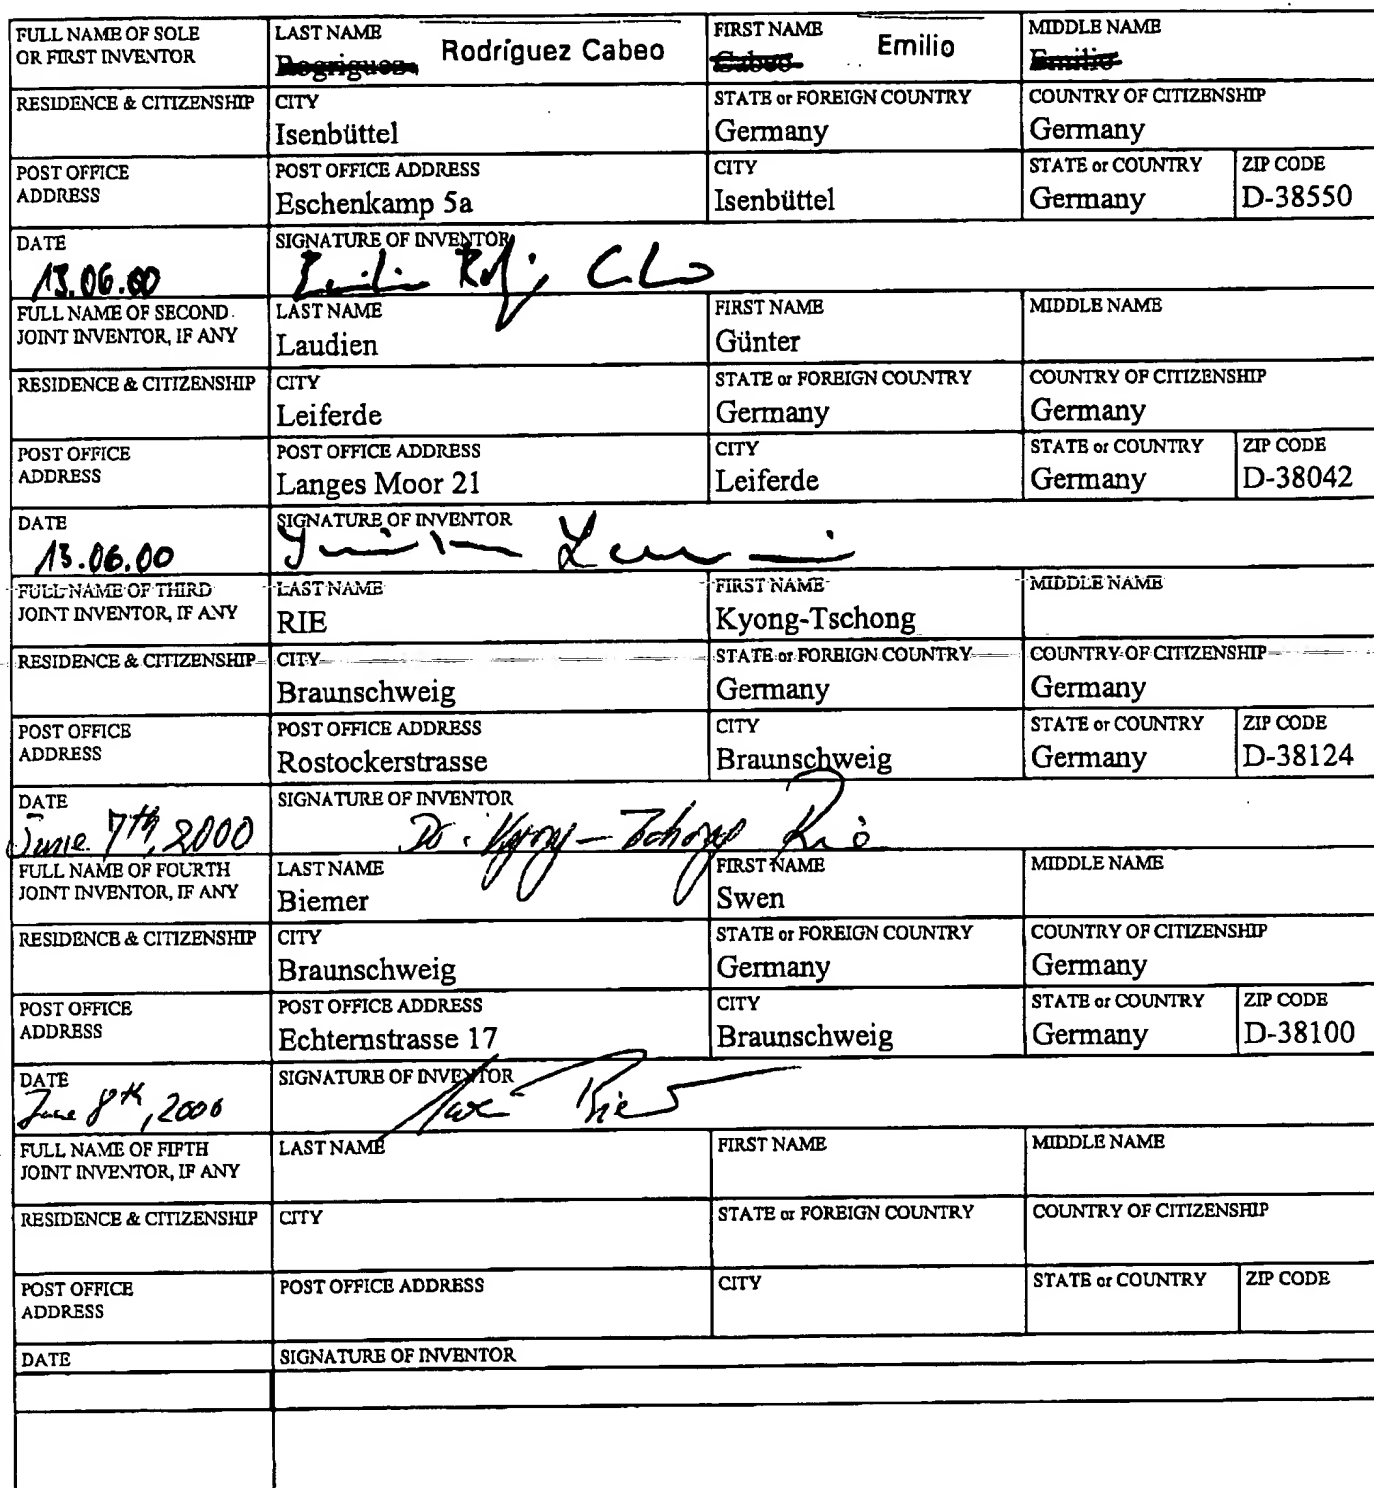 FULL NAME OF SOLE OR FIRST INVENTOR LAST NAME Rogriguez Rodríguez Cabeo FIRST NAME Cabeo Emilio MIDDLE NAME Emilio
RESIDENCE & CITIZENSHIP CITY Isenbüttel STATE or FOREIGN COUNTRY Germany COUNTRY OF CITIZENSHIP Germany
POST OFFICE ADDRESS POST OFFICE ADDRESS Eschenkamp 5a CITY Isenbüttel STATE or COUNTRY Germany ZIP CODE D-38550
DATE 13.06.00 SIGNATURE OF INVENTOR
FULL NAME OF SECOND JOINT INVENTOR, IF ANY LAST NAME Laudien FIRST NAME Günter MIDDLE NAME
RESIDENCE & CITIZENSHIP CITY Leiferde STATE or FOREIGN COUNTRY Germany COUNTRY OF CITIZENSHIP Germany
POST OFFICE ADDRESS POST OFFICE ADDRESS Langes Moor 21 CITY Leiferde STATE or COUNTRY Germany ZIP CODE D-38042
DATE 13.06.00 SIGNATURE OF INVENTOR
FULL NAME OF THIRD JOINT INVENTOR, IF ANY LAST NAME RIE FIRST NAME Kyong-Tschong MIDDLE NAME
RESIDENCE & CITIZENSHIP CITY Braunschweig STATE or FOREIGN COUNTRY Germany COUNTRY OF CITIZENSHIP Germany
POST OFFICE ADDRESS POST OFFICE ADDRESS Rostockerstrasse CITY Braunschweig STATE or COUNTRY Germany ZIP CODE D-38124
DATE June 7th, 2000 SIGNATURE OF INVENTOR Dr. Kyong-Tschong Rie
FULL NAME OF FOURTH JOINT INVENTOR, IF ANY LAST NAME Biemer FIRST NAME Swen MIDDLE NAME
RESIDENCE & CITIZENSHIP CITY Braunschweig STATE or FOREIGN COUNTRY Germany COUNTRY OF CITIZENSHIP Germany
POST OFFICE ADDRESS POST OFFICE ADDRESS Echternstrasse 17 CITY Braunschweig STATE or COUNTRY Germany ZIP CODE D-38100
DATE June 8th, 2000 SIGNATURE OF INVENTOR
FULL NAME OF FIFTH JOINT INVENTOR, IF ANY LAST NAME FIRST NAME MIDDLE NAME
RESIDENCE & CITIZENSHIP CITY STATE or FOREIGN COUNTRY COUNTRY OF CITIZENSHIP
POST OFFICE ADDRESS POST OFFICE ADDRESS CITY STATE or COUNTRY ZIP CODE
DATE SIGNATURE OF INVENTOR